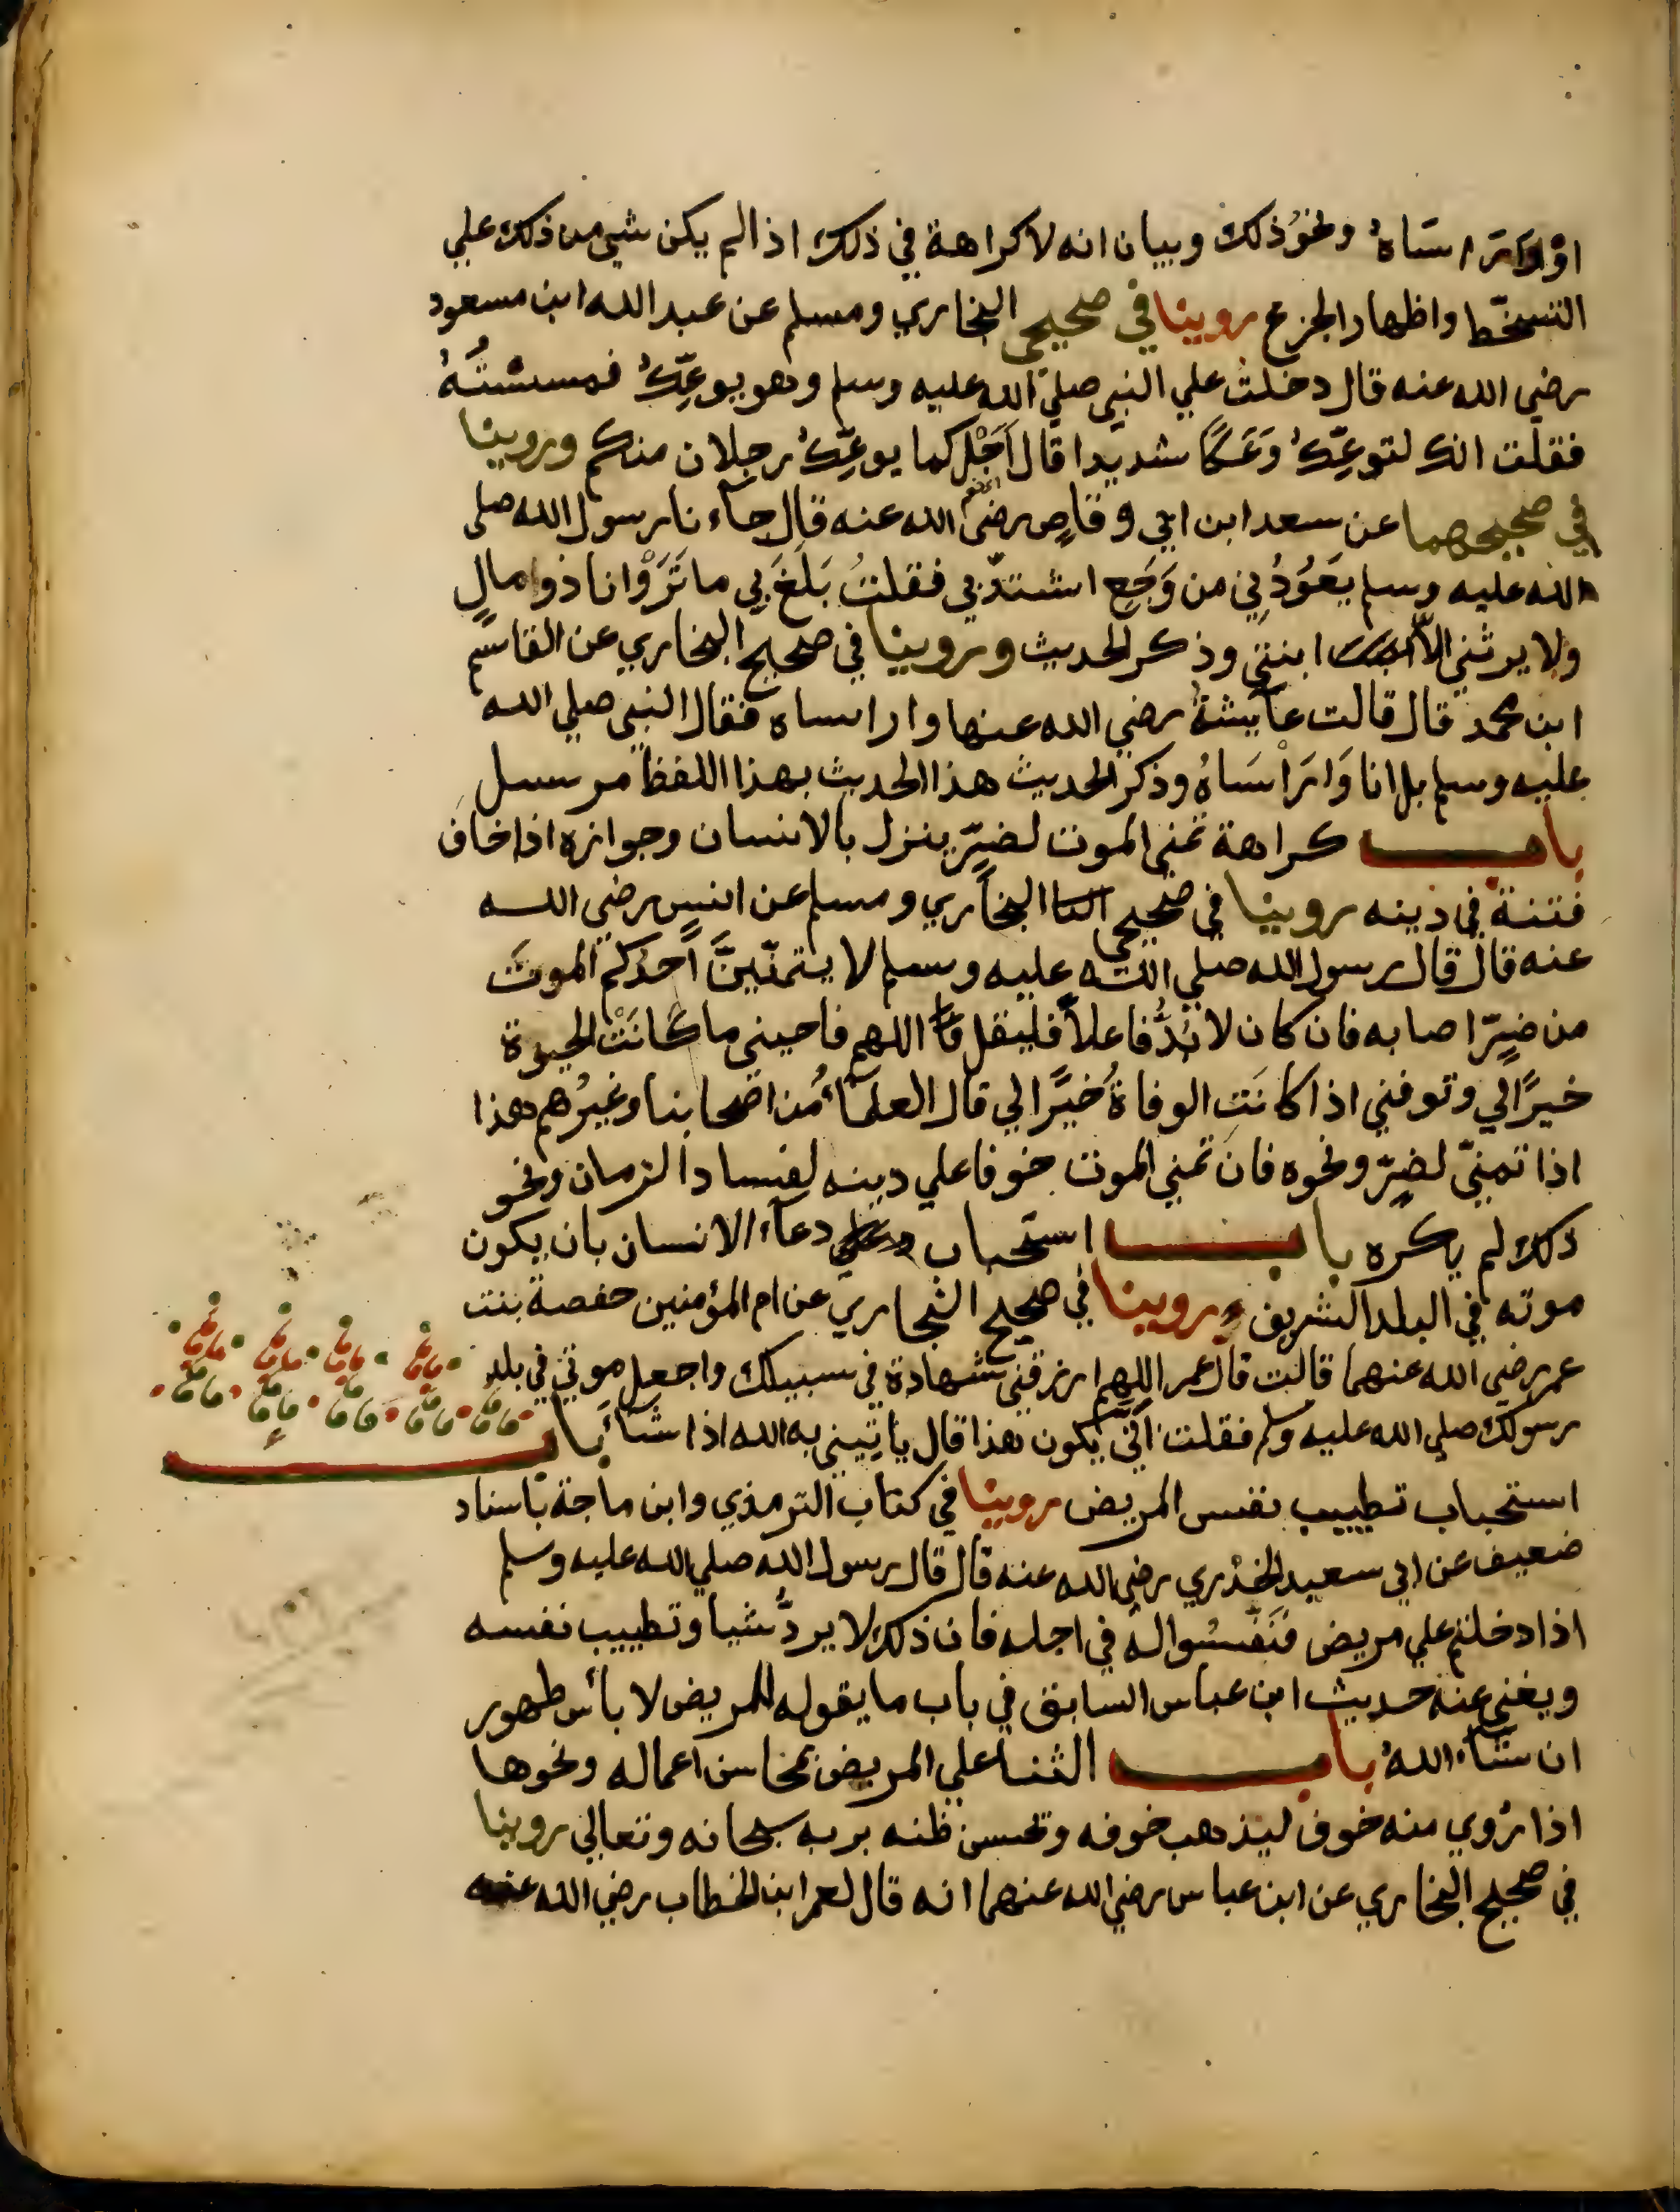 او وارأساه ونحو ذلك وبيان انه لا كراهة في ذلك اذا لم يكن شي من ذلك علي
التسخّط واظهار الجزع روينا في صحيحي البخاري ومسلم عن عبد الله ابن مسعود
رضي الله عنه قال دخلت علي النبي صلي الله عليه وسلم وهو يوعك فمسسته
فقلت انك لتوعك وَعَكًا شديدا قال اَجَلْ كما يوعك رجلان منكم وروينا
في صحيحهما عن سعد ابن ابي وقاصٍ رضي الله عنه قال جآء نا رسول الله صلى
الله عليه وسلم يَعُوْدُنِي من وَجَعٍ اشتدّ بي فقلتُ بَلَغَ بي ما تَرَوْا انا ذوا مالٍ
ولا يرثني الاّ ابنتي وذكر الحديث وروينا في صحيح البخاري عن القاسم
ابن محمد قال قالت عآيشةُ رضي الله عنها وا راساه فقال النبي صلي الله
عليه وسلم بل انا وَا رَاْسَاهُ وذكر الحديث هذا الحديث بهذا اللفظ مرسل
باب كراهة تمني الموت لضرٍّ ينزل بالانسان وجوازه اذا خاف
فتنة في دينه روينا في صحيحي البخاري ومسلم عن انسٍ رضي الله
عنه قال قال رسول الله صلي الله عليه وسلم لا يتمنّينَّ اَحدُكم الموتَ
من ضرٍّ اصابه فان كان لا بُدَّ فاعلاً فليقل اللهم فاحيني ما كَانَتْ الحيوة
خيرًا لي وتوفني اذا كانَتِ الوفاةُ خيرًا لي قال العلمآءُ من اصحابنا وغيرُهم هذا
اذا تمنّي لضرٍّ ونحوه فان تمني الموت خوفا علي دينه لفساد الزمان ونحو
ذلك لم يكره باب استحباب دعآء الانسان بان يكون
موته في البلد الشريف روينا في صحيح البخاري عن ام المؤمنين حفصة بنت
عمر رضي الله عنهما قالت قال عمر اللهم ارزقني شهادة في سبيلك واجعل موتي في بلد
رسولك صلي الله عليه وسلم فقلت اَنّي يكون هذا قال ياتيني به الله اذا شآء باب
استحباب تطييب نفس المريض روينا في كتاب الترمذي وابن ماجة باسناد
ضعيف عن ابي سعيد الخدْري رضي الله عنه قال قال رسول الله صلي الله عليه وسلم
اذا دخلتم علي مريض فَنَفِّسُوا لهُ في اجله فان ذلك لا يردُّ شيا وتطييب نفسه
ويغني عنه حديث ابن عباس السابق في باب ما يقوله للمريض لا بأس طهور
ان شآء اللهُ باب الثنا علي المريض بمحاسن اعماله ونحوها
اذا رُوي منه خوف ليذهب خوفه وتحسن ظنه بربه سبحانه وتعالي روينا
في صحيح البخاري عن ابن عباس رضي الله عنهما انه قال لعمر ابن الخطاب رضي الله عنه